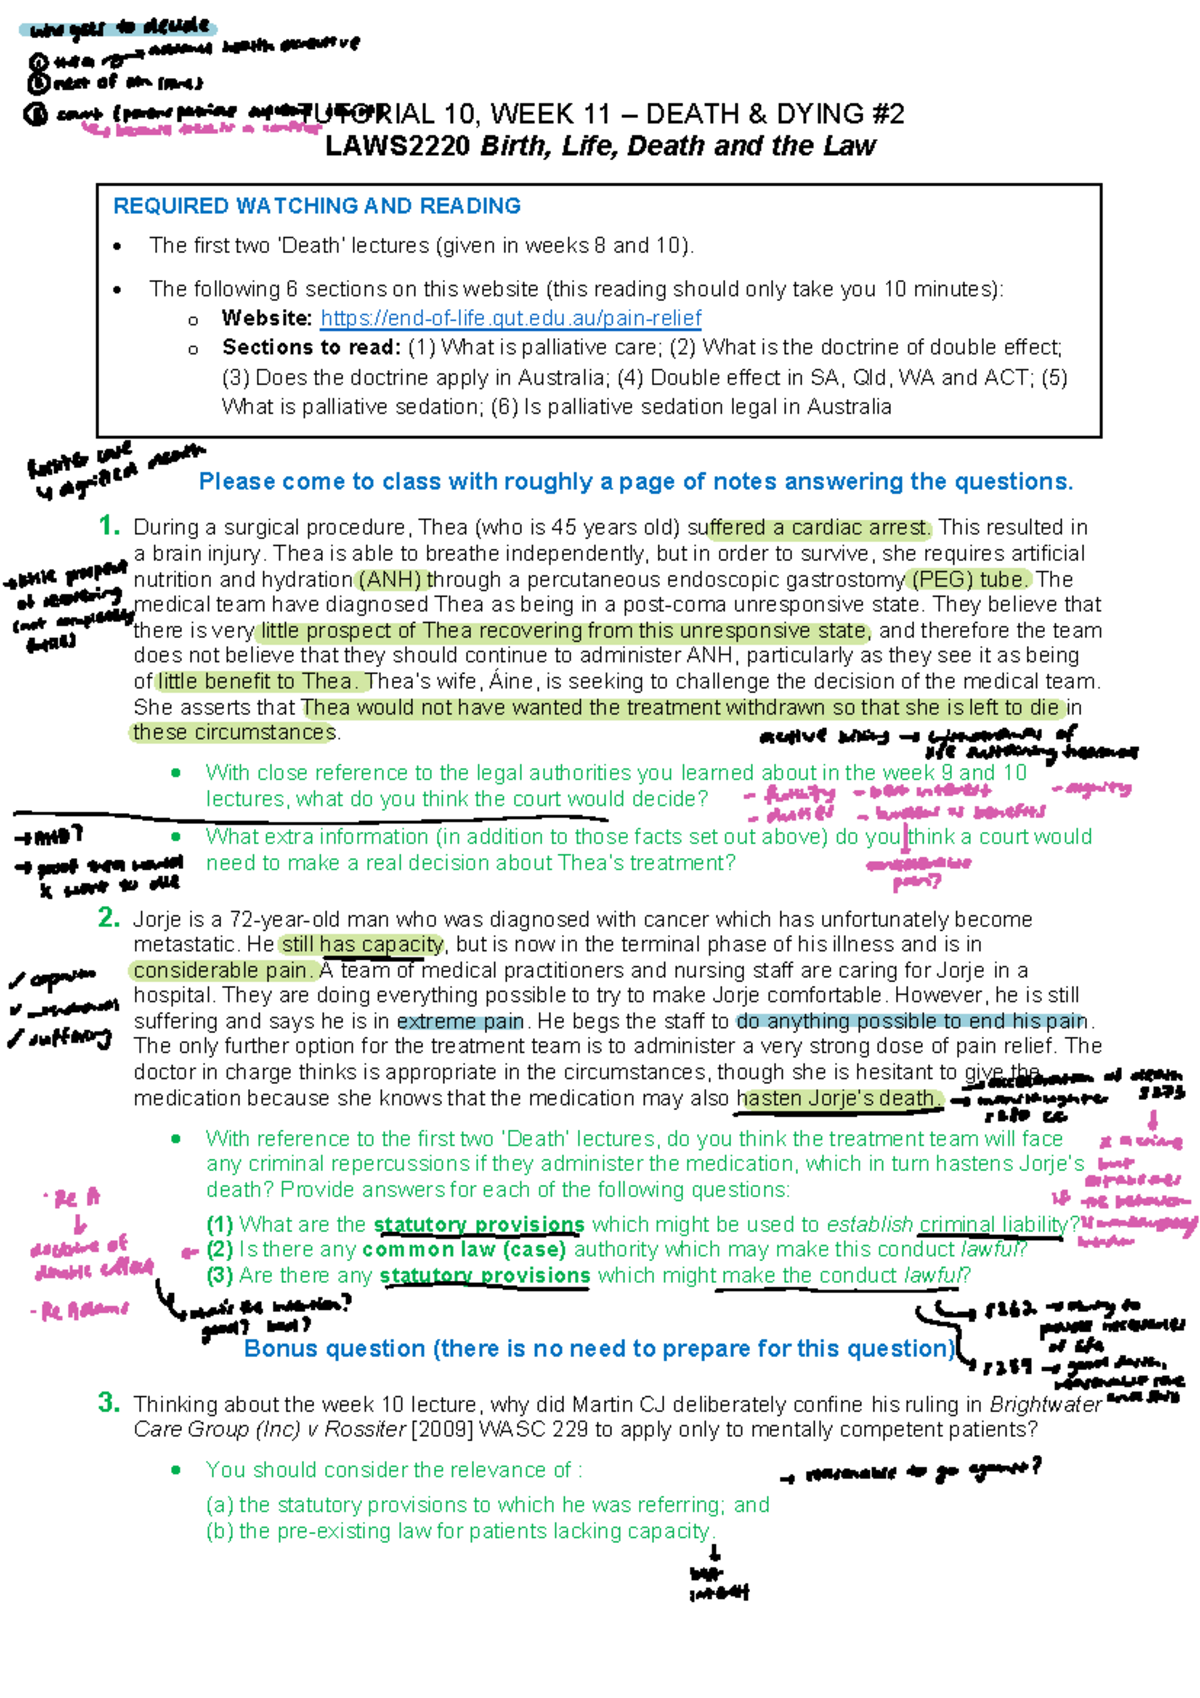 who gets to decide
② next of kin
③ court (parens patriae
TUTORIAL 10, WEEK 11 – DEATH & DYING #2
LAWS2220 Birth, Life, Death and the Law
REQUIRED WATCHING AND READING
• The first two 'Death' lectures (given in weeks 8 and 10).
• The following 6 sections on this website (this reading should only take you 10 minutes):
o Website: https://end-of-life.qut.edu.au/pain-relief
o Sections to read: (1) What is palliative care; (2) What is the doctrine of double effect;
(3) Does the doctrine apply in Australia; (4) Double effect in SA, Qld, WA and ACT; (5)
What is palliative sedation; (6) Is palliative sedation legal in Australia
Please come to class with roughly a page of notes answering the questions.
1. During a surgical procedure, Thea (who is 45 years old) suffered a cardiac arrest. This resulted in
a brain injury. Thea is able to breathe independently, but in order to survive, she requires artificial
nutrition and hydration (ANH) through a percutaneous endoscopic gastrostomy (PEG) tube. The
medical team have diagnosed Thea as being in a post-coma unresponsive state. They believe that
there is very little prospect of Thea recovering from this unresponsive state, and therefore the team
does not believe that they should continue to administer ANH, particularly as they see it as being
of little benefit to Thea. Thea's wife, Áine, is seeking to challenge the decision of the medical team.
She asserts that Thea would not have wanted the treatment withdrawn so that she is left to die in
these circumstances.
→ little prospect
of recovering
(not completely
futile)
• With close reference to the legal authorities you learned about in the week 9 and 10
lectures, what do you think the court would decide?
- futility - best interest - dignity
- duties - burdens vs benefits
• What extra information (in addition to those facts set out above) do you think a court would
need to make a real decision about Thea's treatment?
→ AHD?
pain?
2. Jorje is a 72-year-old man who was diagnosed with cancer which has unfortunately become
metastatic. He still has capacity, but is now in the terminal phase of his illness and is in
considerable pain. A team of medical practitioners and nursing staff are caring for Jorje in a
hospital. They are doing everything possible to try to make Jorje comfortable. However, he is still
suffering and says he is in extreme pain. He begs the staff to do anything possible to end his pain.
The only further option for the treatment team is to administer a very strong dose of pain relief. The
doctor in charge thinks is appropriate in the circumstances, though she is hesitant to give the
medication because she knows that the medication may also hasten Jorje's death.
✓ capacity
✓ suffering
→ acceleration of death
→ manslaughter
• With reference to the first two 'Death' lectures, do you think the treatment team will face
any criminal repercussions if they administer the medication, which in turn hastens Jorje's
death? Provide answers for each of the following questions:
(1) What are the statutory provisions which might be used to establish criminal liability?
(2) Is there any common law (case) authority which may make this conduct lawful?
(3) Are there any statutory provisions which might make the conduct lawful?
· Re A
↓
doctrine of
double effect
- Re Adams
→ what's the intention?
good? bad?
→ s262 → duty to
provide necessaries
of life
→ s259 → good faith,
Bonus question (there is no need to prepare for this question)
3. Thinking about the week 10 lecture, why did Martin CJ deliberately confine his ruling in Brightwater
Care Group (Inc) v Rossiter [2009] WASC 229 to apply only to mentally competent patients?
• You should consider the relevance of :
→ reasonable to go against?
(a) the statutory provisions to which he was referring; and
(b) the pre-existing law for patients lacking capacity.
↓
best
interest